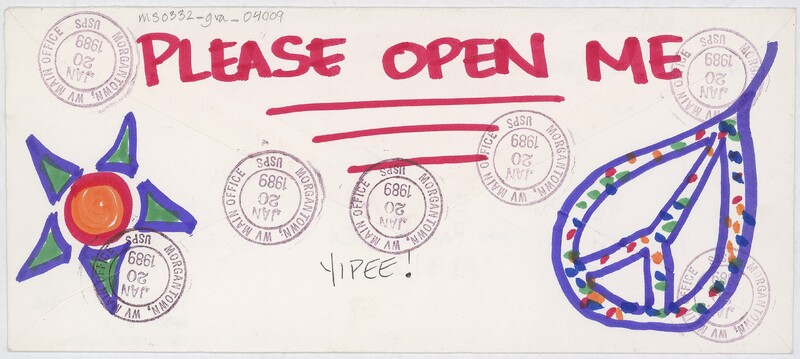 ms0332-gra_04009
PLEASE OPEN ME
YIPEE!
MORGANTOWN, WV MAIN OFFICE
JAN
20
1989
USPS
MORGANTOWN, WV MAIN OFFICE
JAN
20
1989
USPS
MORGANTOWN, WV MAIN OFFICE
JAN
20
1989
USPS
MORGANTOWN, WV MAIN OFFICE
JAN
20
1989
USPS
MORGANTOWN, WV MAIN OFFICE
JAN
20
1989
USPS
MORGANTOWN, WV MAIN OFFICE
JAN
20
1989
USPS